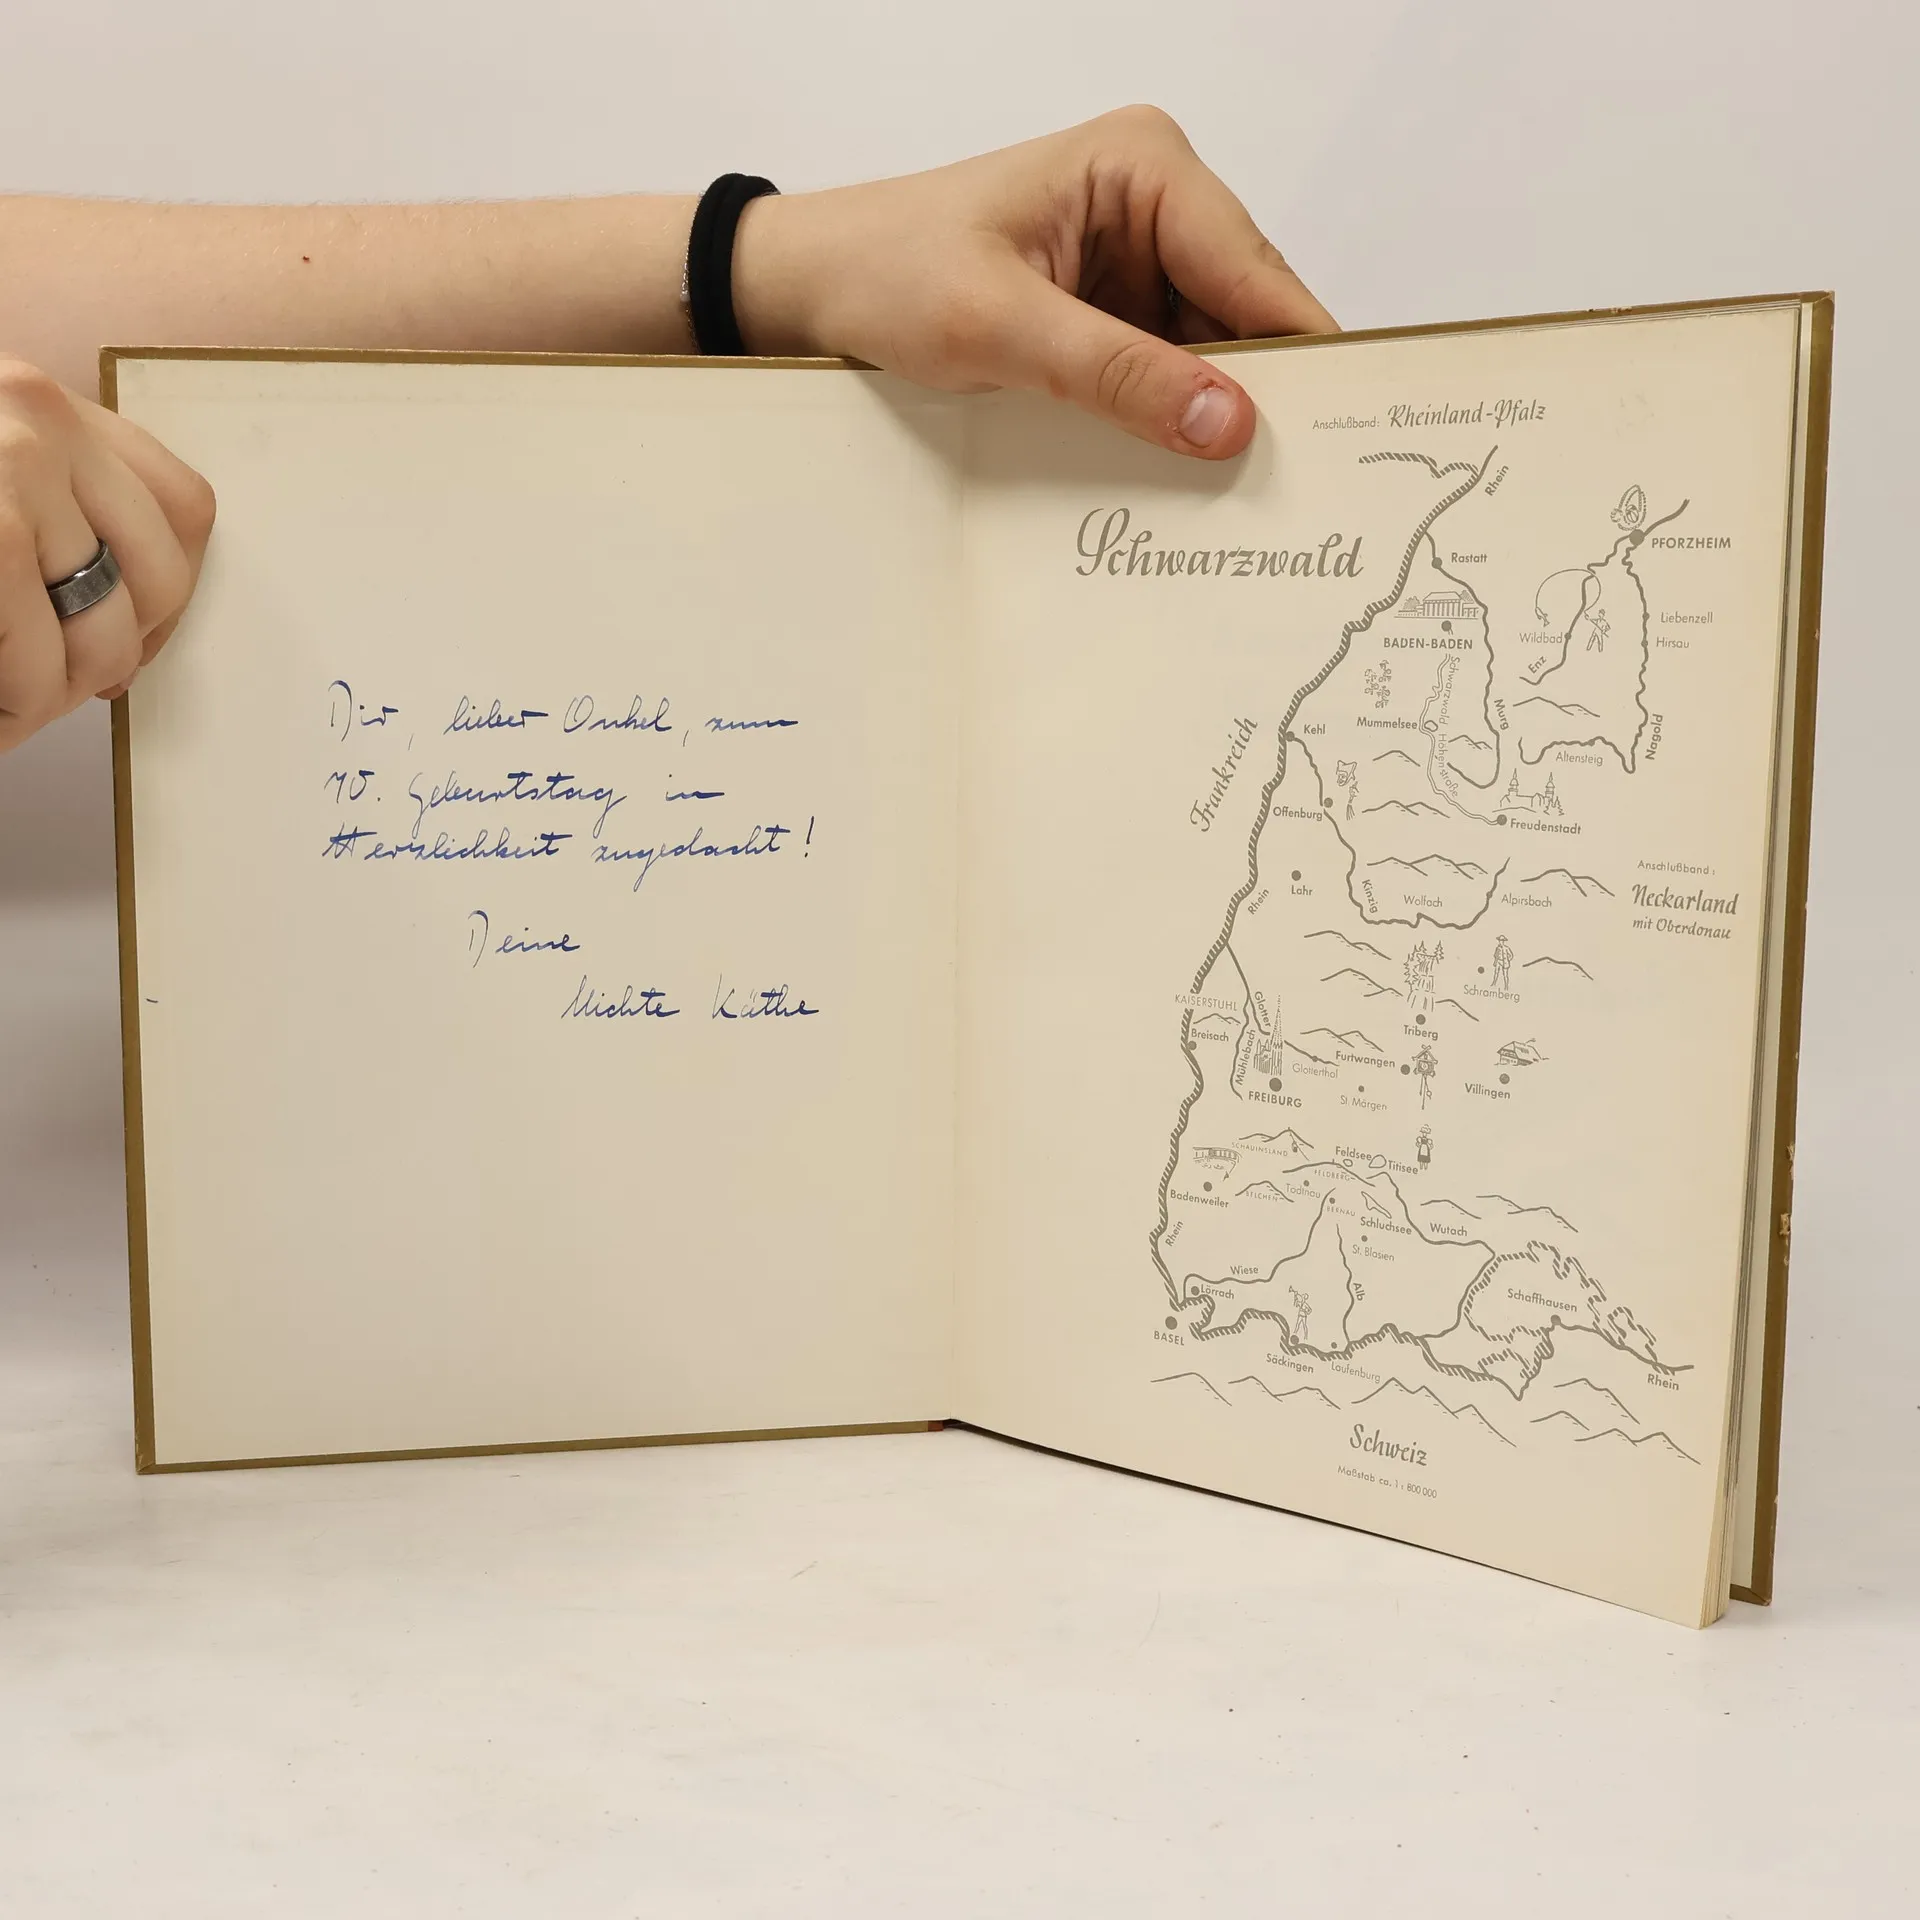 Dir, lieber Onkel, zum
70. Geburtstag in
Herzlichkeit zugedacht!
Deine
Nichte Käthe
Anschlußband: Rheinland-Pfalz
Schwarzwald
Rhein
PFORZHEIM
Rastatt
Liebenzell
Wildbad
Hirsau
BADEN-BADEN
Enz
Schwarzwald Höhenstraße
Murg
Mummelsee
Kehl
Nagold
Altensteig
Frankreich
Offenburg
Freudenstadt
Anschlußband:
Neckarland
mit Oberdonau
Lahr
Rhein
Kinzig
Wolfach
Alpirsbach
Schramberg
KAISERSTUHL
Glotter
Triberg
Breisach
Mühlebach
Furtwangen
Glottertal
Villingen
FREIBURG
St. Märgen
SCHAUINSLAND
Feldsee
Titisee
FELDBERG
Badenweiler
BELCHEN
Todtnau
BERNAU
Schluchsee
Wutach
Rhein
St. Blasien
Wiese
Alb
Lörrach
Schaffhausen
BASEL
Säckingen
Laufenburg
Rhein
Schweiz
Maßstab ca. 1 : 800 000